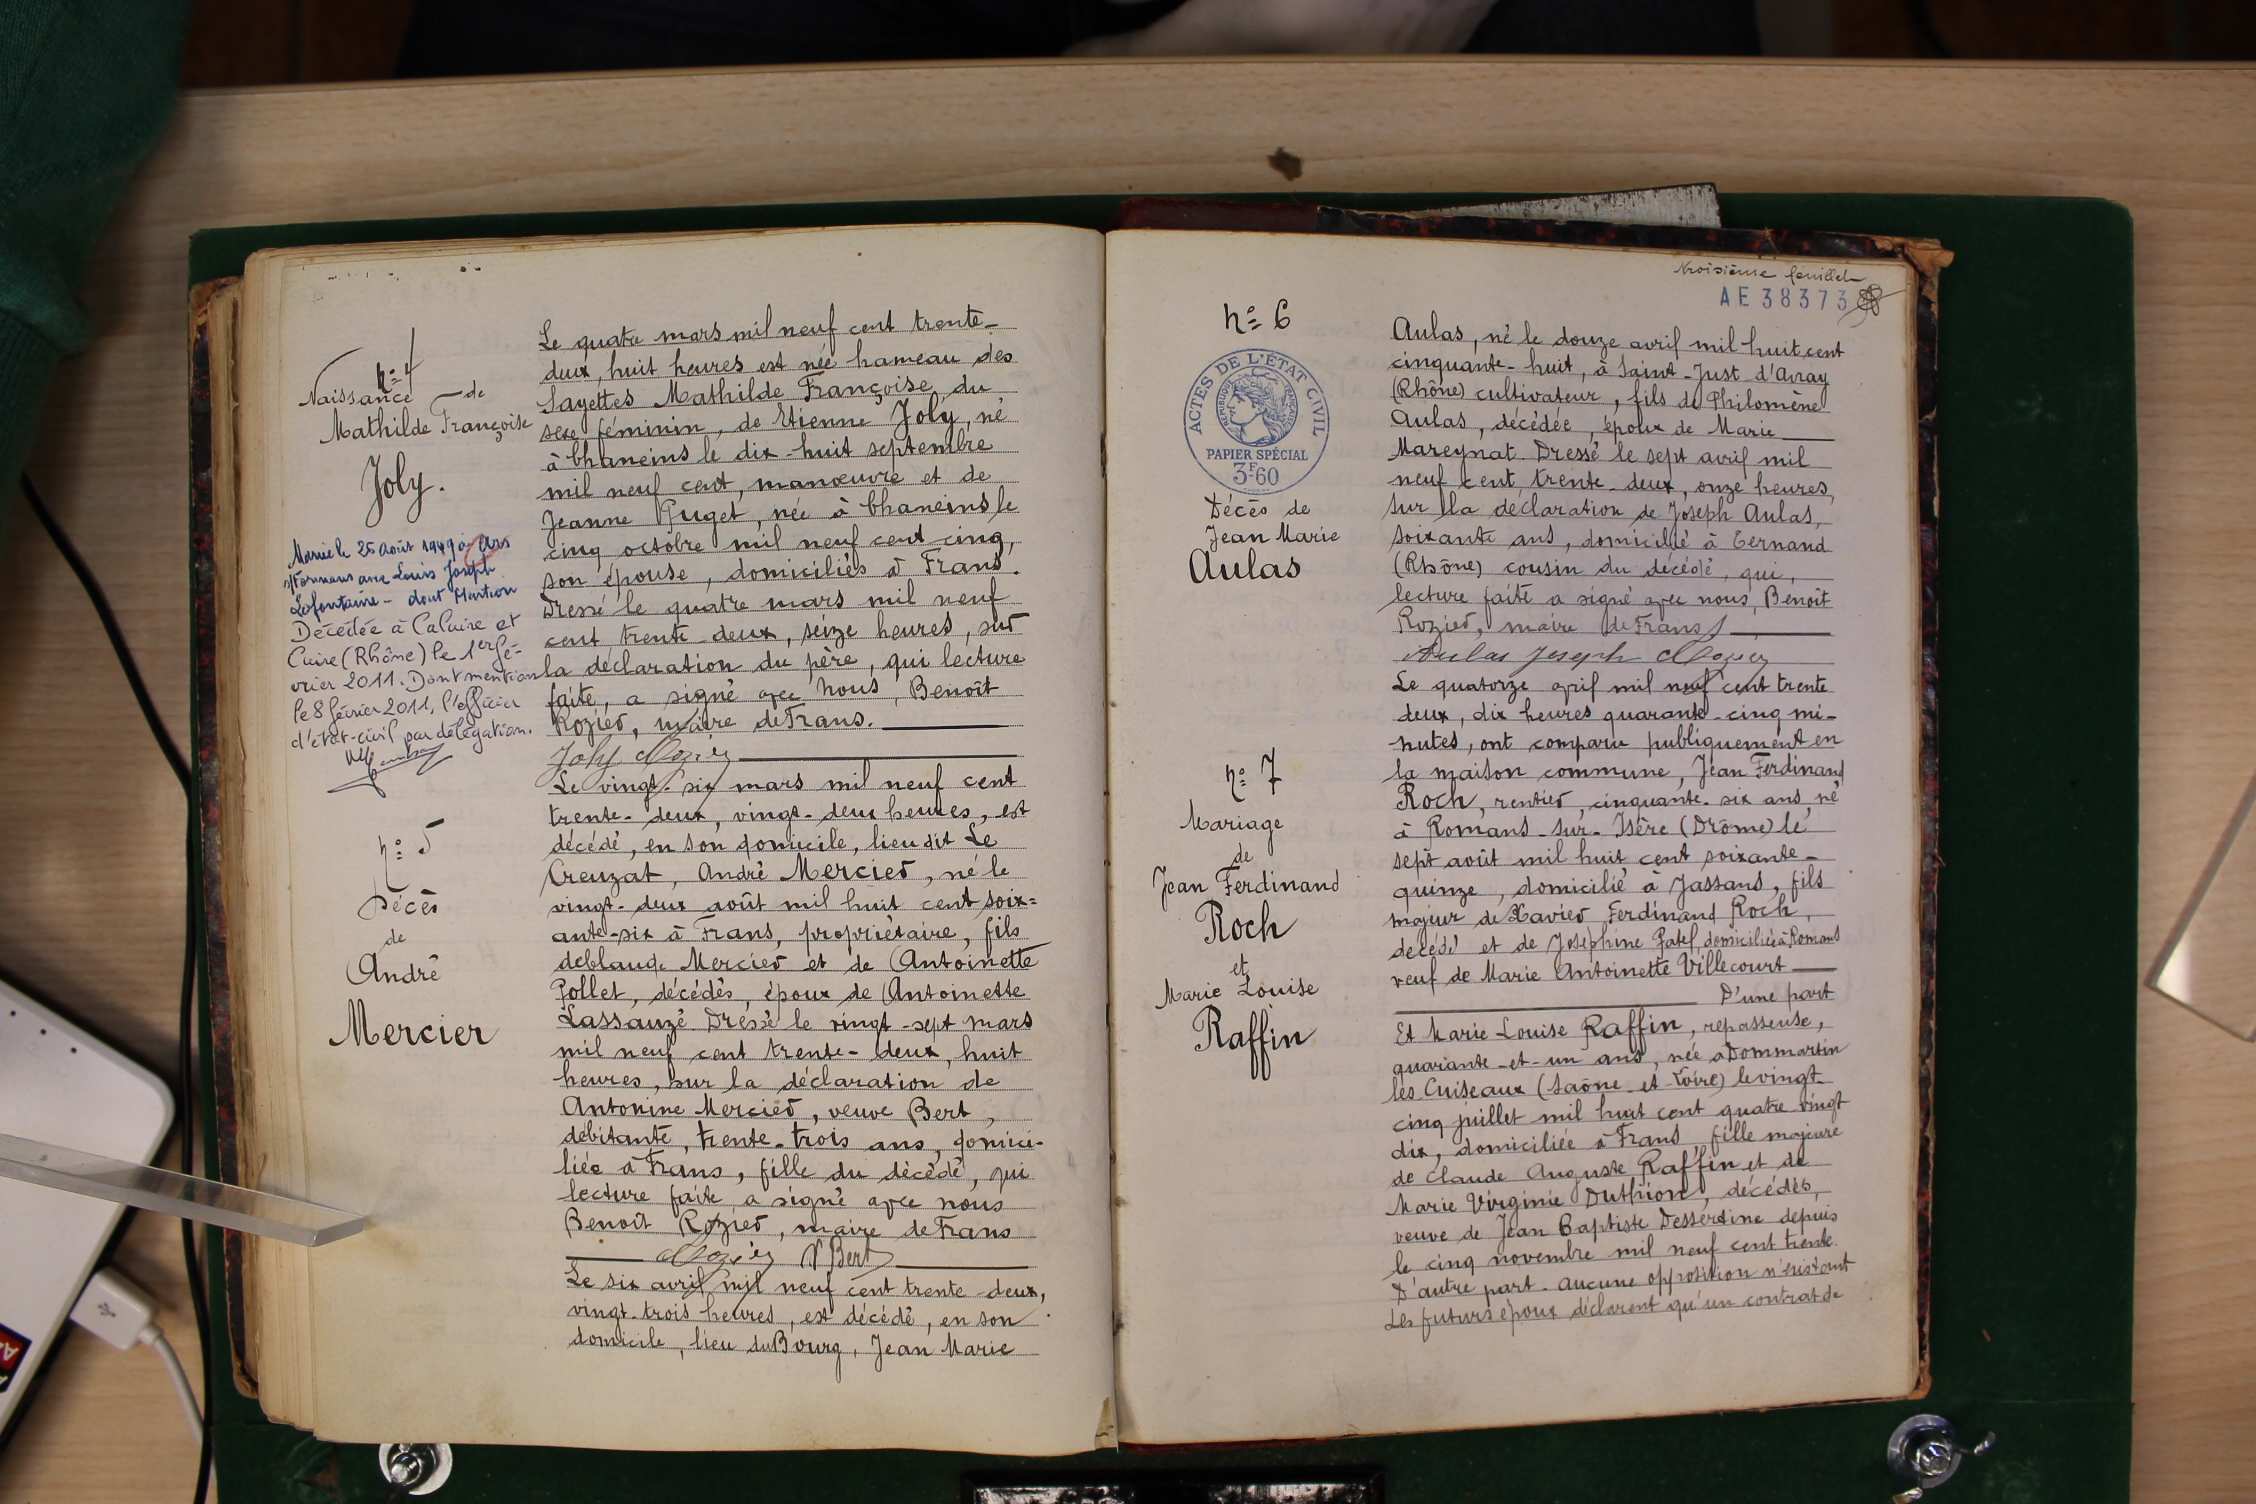 nº 4
Naissance de
Mathilde Françoise
Joly.
Marié le 25 Août 1949 à Ars
s/Formans avec Louis Joseph
Lafontaine - dont Mention
Décédée à Caluire et
Cuire (Rhône) le 1er fé-
vrier 2011. Dont mention
le 8 février 2011, l'officier
d'état-civil par délégation.
Le quatre mars mil neuf cent trente-
deux, huit heures est née hameau des
Sayettes Mathilde Françoise, du
sexe féminin, de Etienne Joly, né
à Chaneins le dix-huit septembre
mil neuf cent, manœuvre et de
Jeanne Puget, née à Chaneins le
cinq octobre mil neuf cent cinq,
son épouse, domiciliés à Frans.
Dressé le quatre mars mil neuf
cent trente-deux, seize heures, sur
la déclaration du père, qui lecture
faite, a signé avec Nous, Benoît
Rozier, maire de Frans.
Joly Rozier
nº 5
Décès
de
André
Mercier
Le vingt-six mars mil neuf cent
trente-deux, vingt-deux heures, est
décédé, en son domicile, lieu dit Le
Creuzat, André Mercier, né le
vingt-deux août mil huit cent soix=
ante-six à Frans, propriétaire, fils
de Claude Mercier et de Antoinette
Pollet, décédés, époux de Antoinette
Lassauzé Dressé le vingt-sept mars
mil neuf cent trente-deux, huit
heures, sur la déclaration de
Antonine Mercier, veuve Bert,
débitante, trente-trois ans, domici-
liée à Frans, fille du décédé, qui
lecture faite a signé avec nous
Benoît Rozier, maire de Frans
Rozier Vve Bert
Le six avril mil neuf cent trente-deux,
vingt-trois heures, est décédé, en son
domicile, lieu du Bourg, Jean Marie
Troisième feuillet
AE 38373
nº 6
ACTES DE L'ÉTAT CIVIL
RÉPUBLIQUE FRANÇAISE
PAPIER SPÉCIAL
3F60
Décès de
Jean Marie
Aulas
Aulas, né le douze avril mil huit cent
cinquante-huit, à Saint-Just-d'Avray
(Rhône) cultivateur, fils de Philomène
Aulas, décédée, époux de Marie
Mareynat. Dressé le sept avril mil
neuf cent trente-deux, onze heures,
sur la déclaration de Joseph Aulas,
soixante ans, domicilié à Ternand
(Rhône) cousin du décédé, qui,
lecture faite a signé avec nous, Benoît
Rozier, maire de Frans
Aulas Joseph Rozier
nº 7
Mariage
de
Jean Ferdinand
Roch
et
Marie Louise
Raffin
Le quatorze avril mil neuf cent trente
deux, dix heures quarante-cinq mi-
nutes, ont comparu publiquement en
la maison commune, Jean Ferdinand
Roch, rentier, cinquante-six ans, né
à Romans-sur-Isère (Drôme) le
sept août mil huit cent soixante-
quinze, domicilié à Jassans, fils
majeur de Xavier Ferdinand Roch,
décédé et de Joséphine Patel, domiciliée à Romans
veuf de Marie Antoinette Villecourt
D'une part
Et Marie Louise Raffin, repasseuse,
quarante-et-un ans, née à Dommartin
les Cuiseaux (Saône-et-Loire) le vingt
cinq juillet mil huit cent quatre vingt
dix, domiciliée à Frans fille majeure
de Claude Auguste Raffin et de
Marie Virginie Duthion, décédés,
veuve de Jean Baptiste Dessertine depuis
le cinq novembre mil neuf cent trente.
D'autre part. Aucune opposition n'existant
Les futurs époux déclarent qu'un contrat de